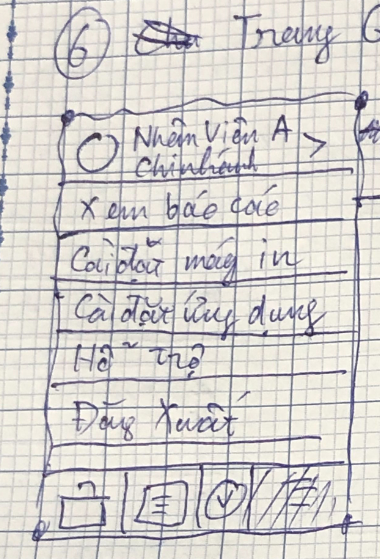 6 Trang
Nhân Viên A >
Chi nhánh
Xem báo cáo
Cài đặt máy in
Cài đặt ứng dụng
Hỗ trợ
Đăng Xuất